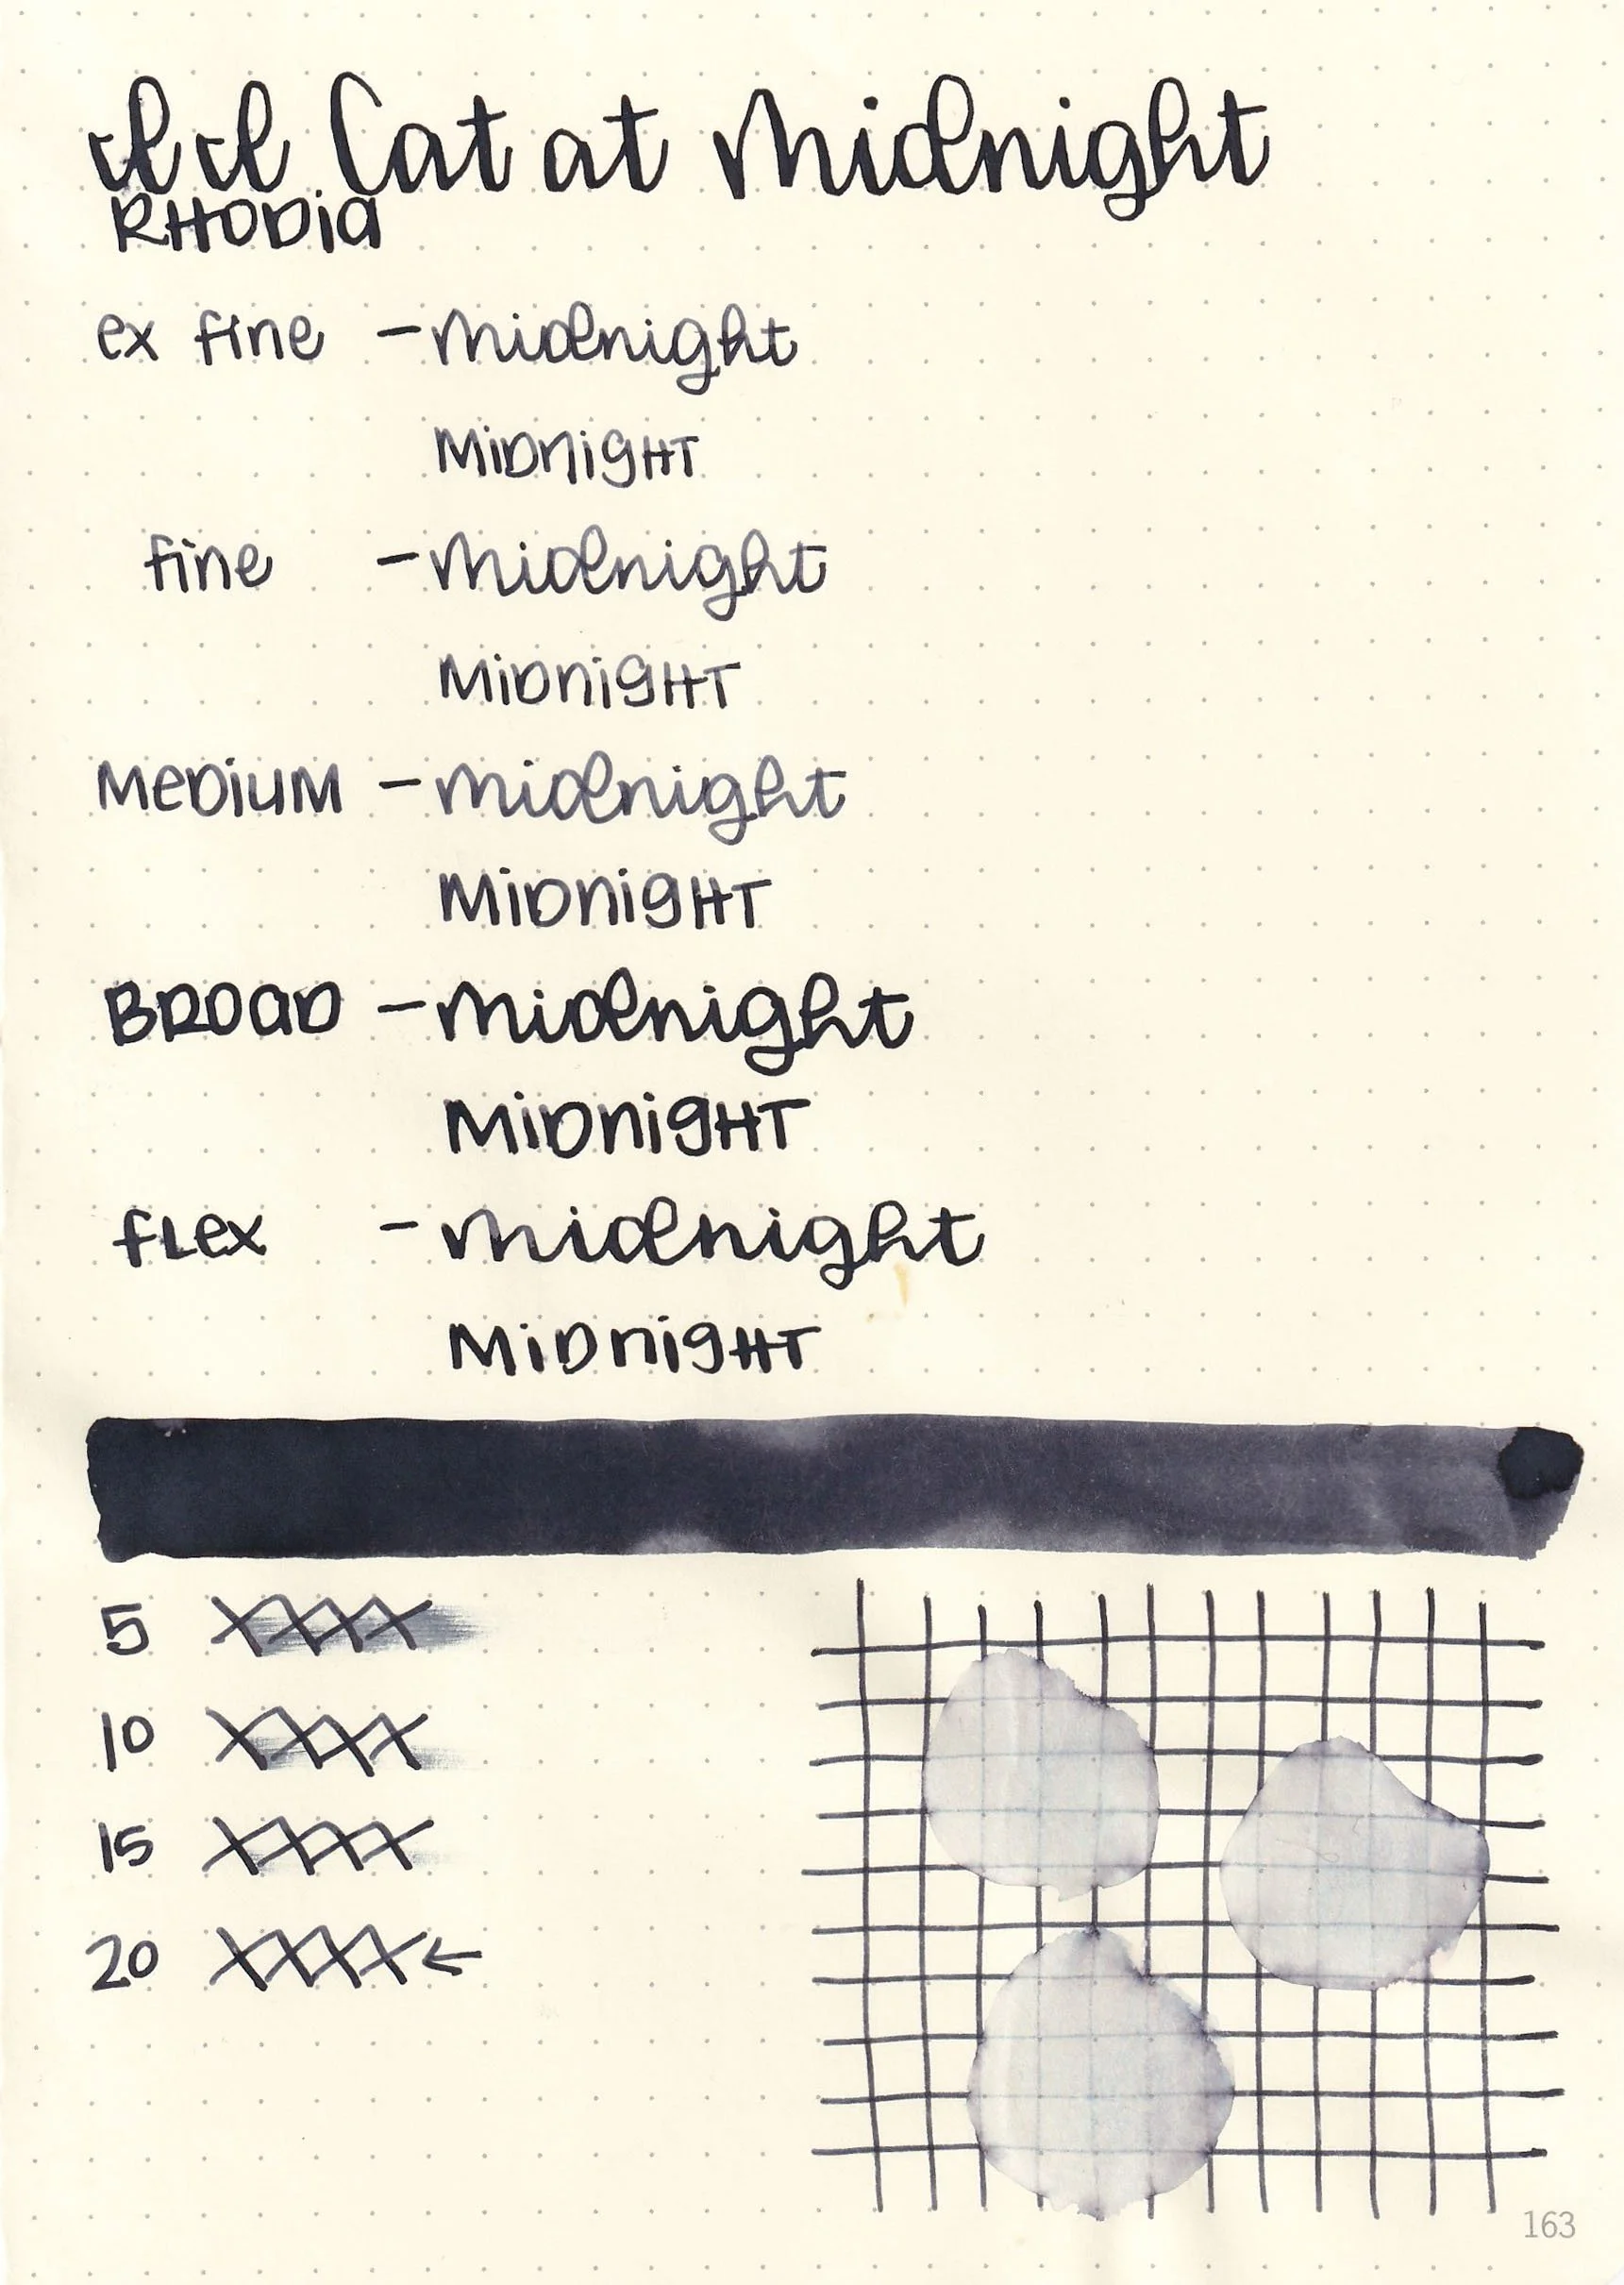 Cat at Midnight
RHODia
ex fine - midnight
MiDnigHT
fine - midnight
MiDnigHT
MeDiuM - midnight
MiDnigHT
BROaD - midnight
MiDnigHT
fLex - midnight
MiDnigHT
5 XXXX
10 XXXX
15 XXXX
20 XXXX ←
163